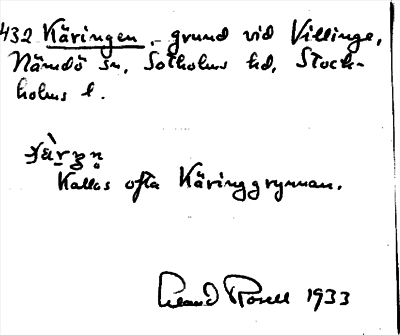 432 Käringen, grund vid Villinge,
Nämdö sn, Sotholms hd, Stock-
holms l.
Kallas ofta Käringgrynnan.
1933